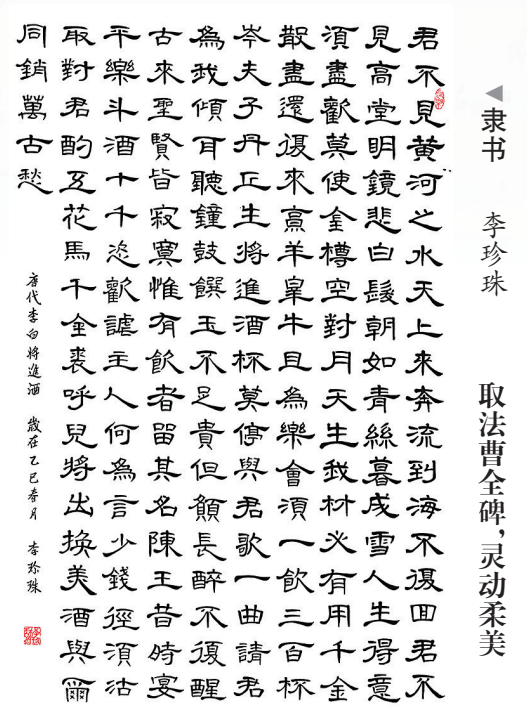 隶书 李珍珠 取法曹全碑，灵动柔美
君不見黄河之水天上來奔流到海不復回君不
見高堂明鏡悲白髮朝如青絲暮成雪人生得意
須盡歡莫使金樽空對月天生我材必有用千金
散盡還復來烹羊宰牛且為樂會須一飲三百杯
岑夫子丹丘生將進酒杯莫停與君歌一曲請君
為我傾耳聽鐘鼓饌玉不足貴但願長醉不復醒
古來聖賢皆寂寞惟有飲者留其名陳王昔時宴
平樂斗酒十千恣歡謔主人何為言少錢徑須沽
取對君酌五花馬千金裘呼兒將出換美酒與爾
同銷萬古愁
唐代李白將進酒 歲在乙巳春月 李珍珠